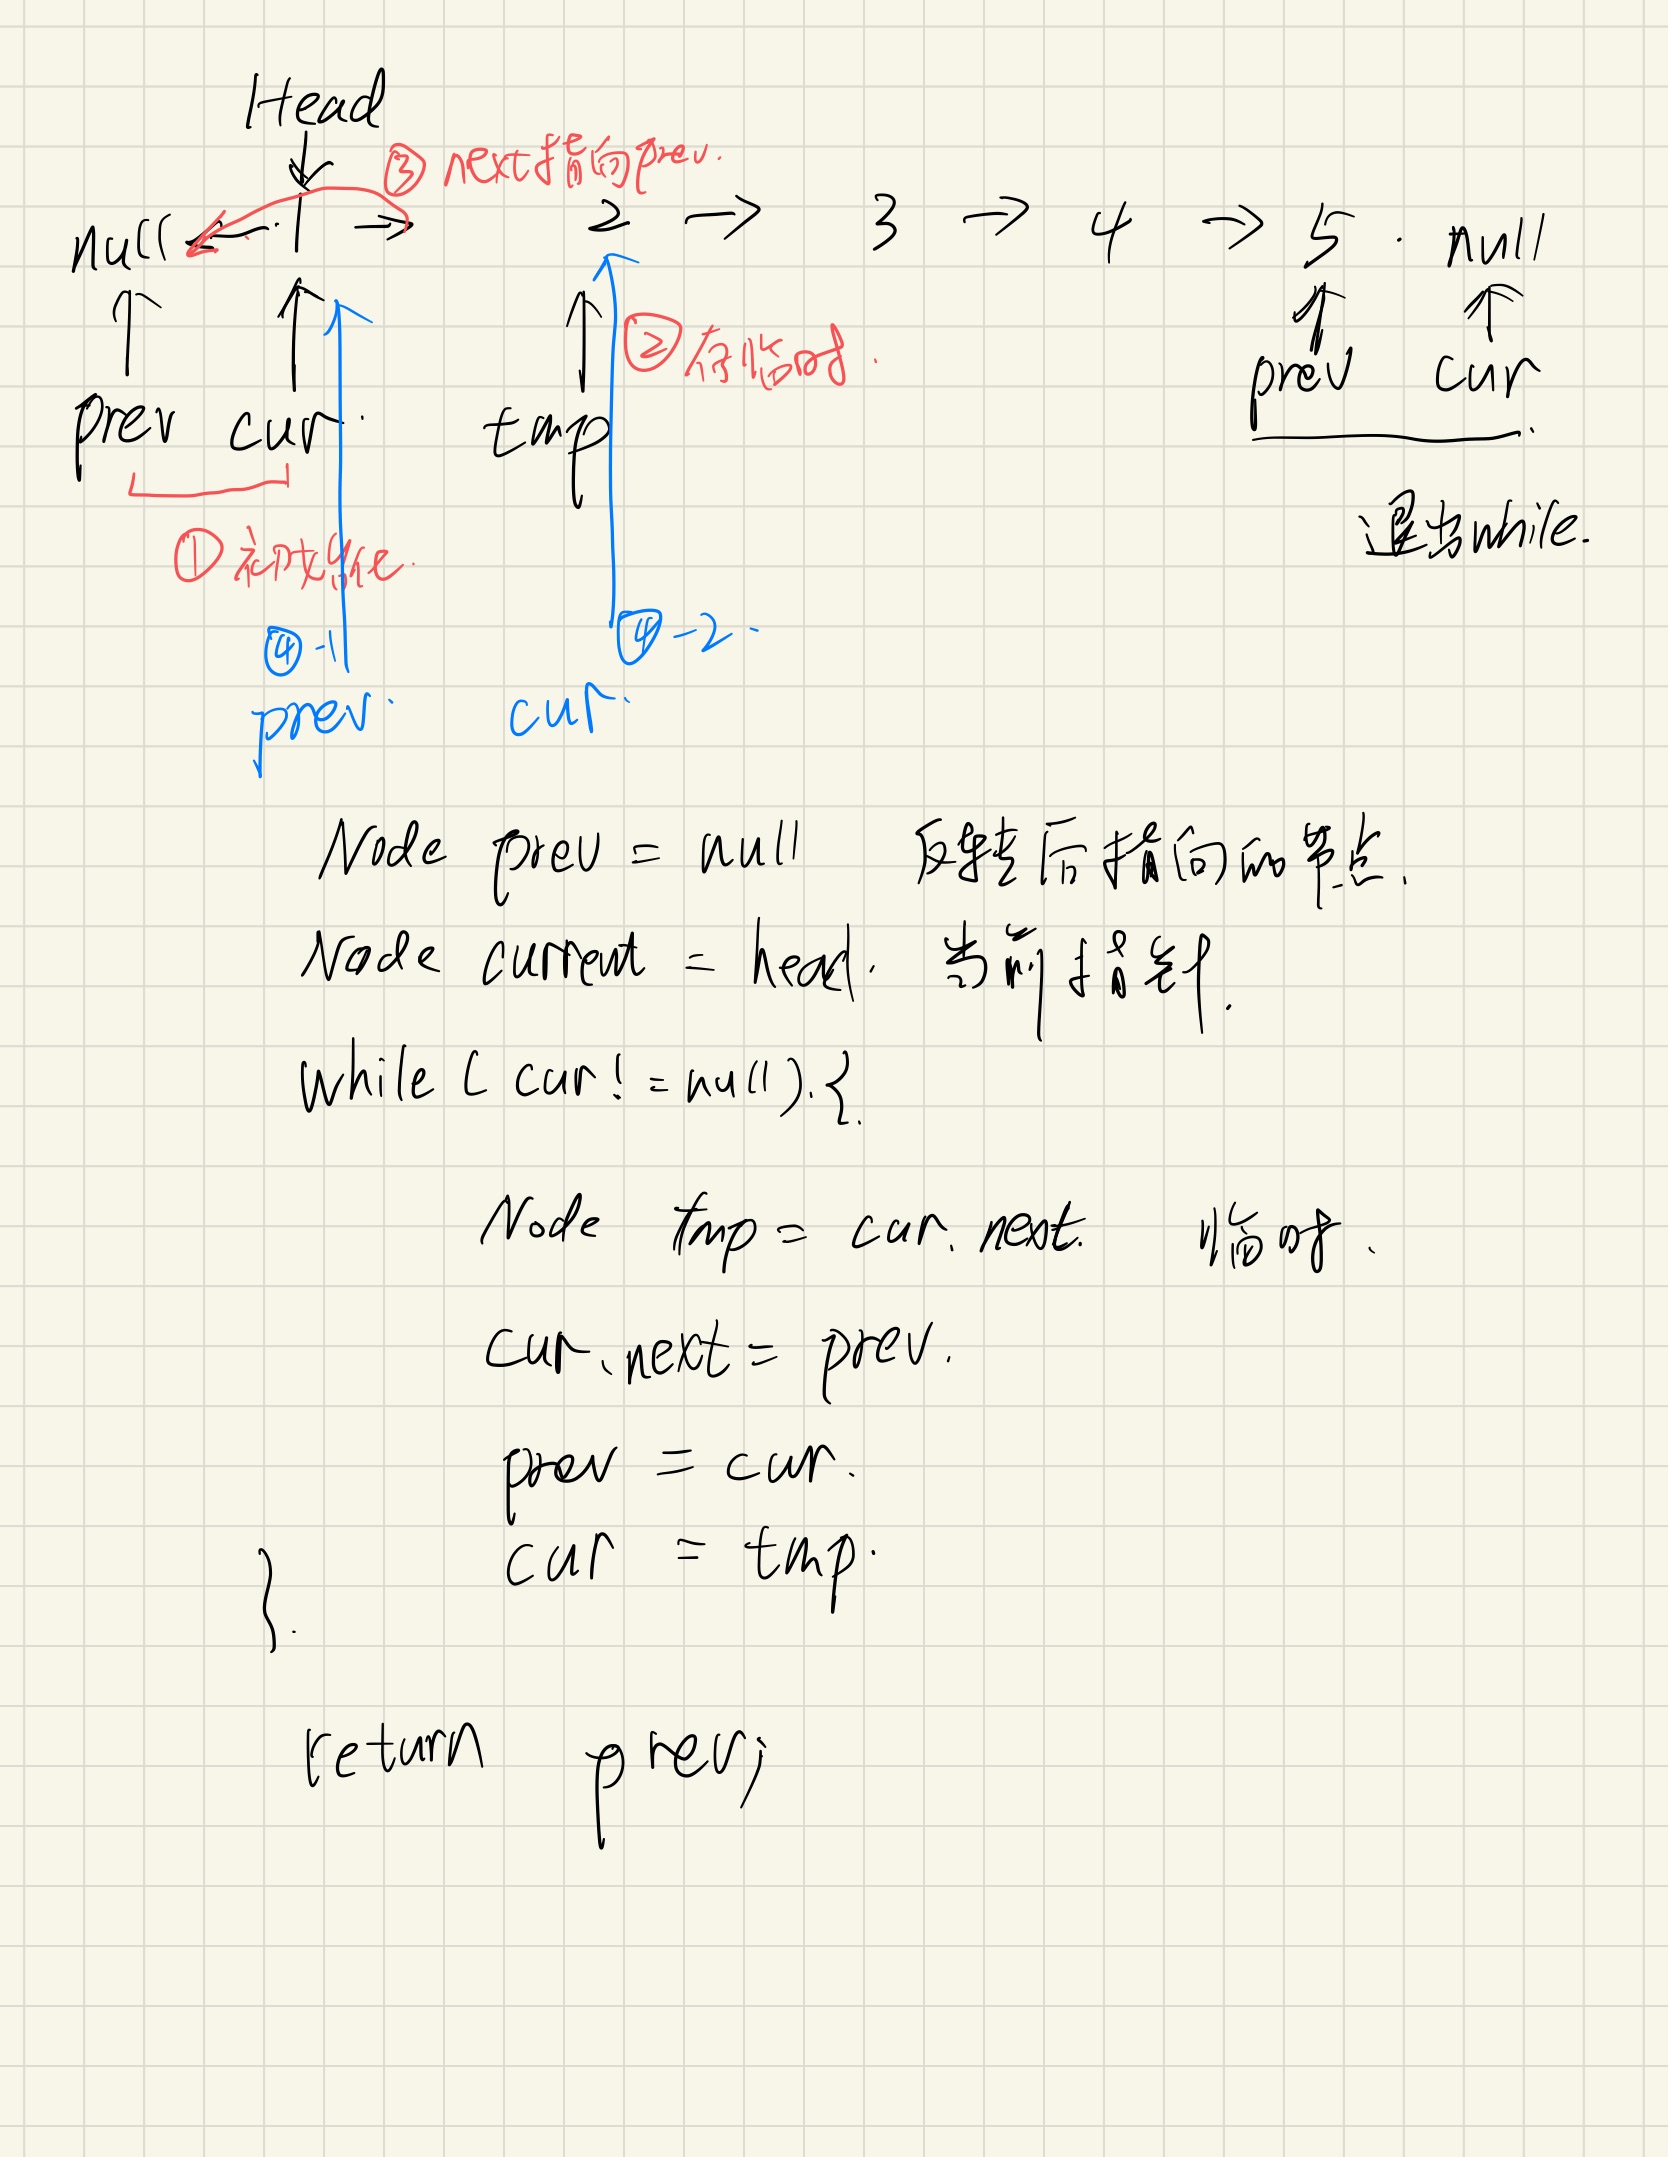 Head
③ next指向prev.
null ← 1 → 2 → 3 → 4 → 5 . null
② 存临时.
prev cur. tmp prev cur
① 初始化.
退出while.
④-1 ④-2.
prev. cur.
Node prev = null 反转后指向的节点.
Node current = head. 当前指针.
while ( cur! = null). {.
Node tmp = cur. next. 临时.
cur.next = prev.
prev = cur.
cur = tmp.
}.
return prev;